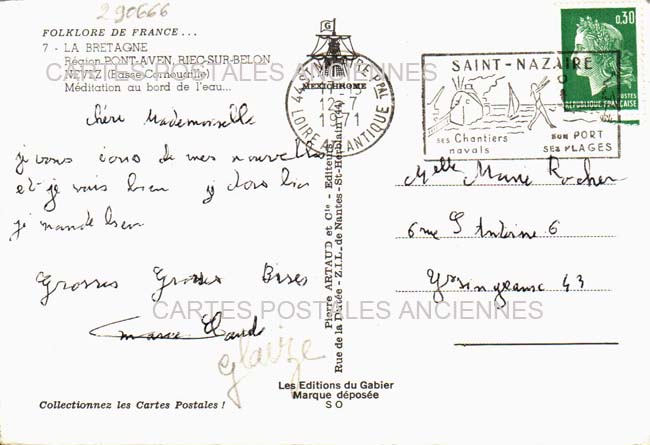 290666
FOLKLORE DE FRANCE...
7 - LA BRETAGNE
Région PONT-AVEN, RIEC-SUR-BELON
NEVEZ (Basse-Cornouaille)
Méditation au bord de l'eau...
CARTES POSTALES ANCIENNES
G
MEXICHROME
44 ST NAZAIRE PPAL
17-15
12-7
1971
LOIRE ATLANTIQUE
SAINT-NAZAIRE
ses Chantiers
navals
son PORT
ses PLAGES
0,30
POSTES
REPUBLIQUE FRANÇAISE
chère Mademoiselle
je vous écris de mes nouvelles
et je vais bien je dors bien
je mande bien
Grosses Grosses Bises
Marie Claude
glaize
Melle Marie Rocher
6 rue S Antoine 6
Yssingeaux 43
CARTES POSTALES ANCIENNES
Pierre ARTAUD et Cie - Editeurs
Rue de la Dutée - Z.I.L. de Nantes-St-Herblain (44)
Les Editions du Gabier
Marque déposée
S O
Collectionnez les Cartes Postales !